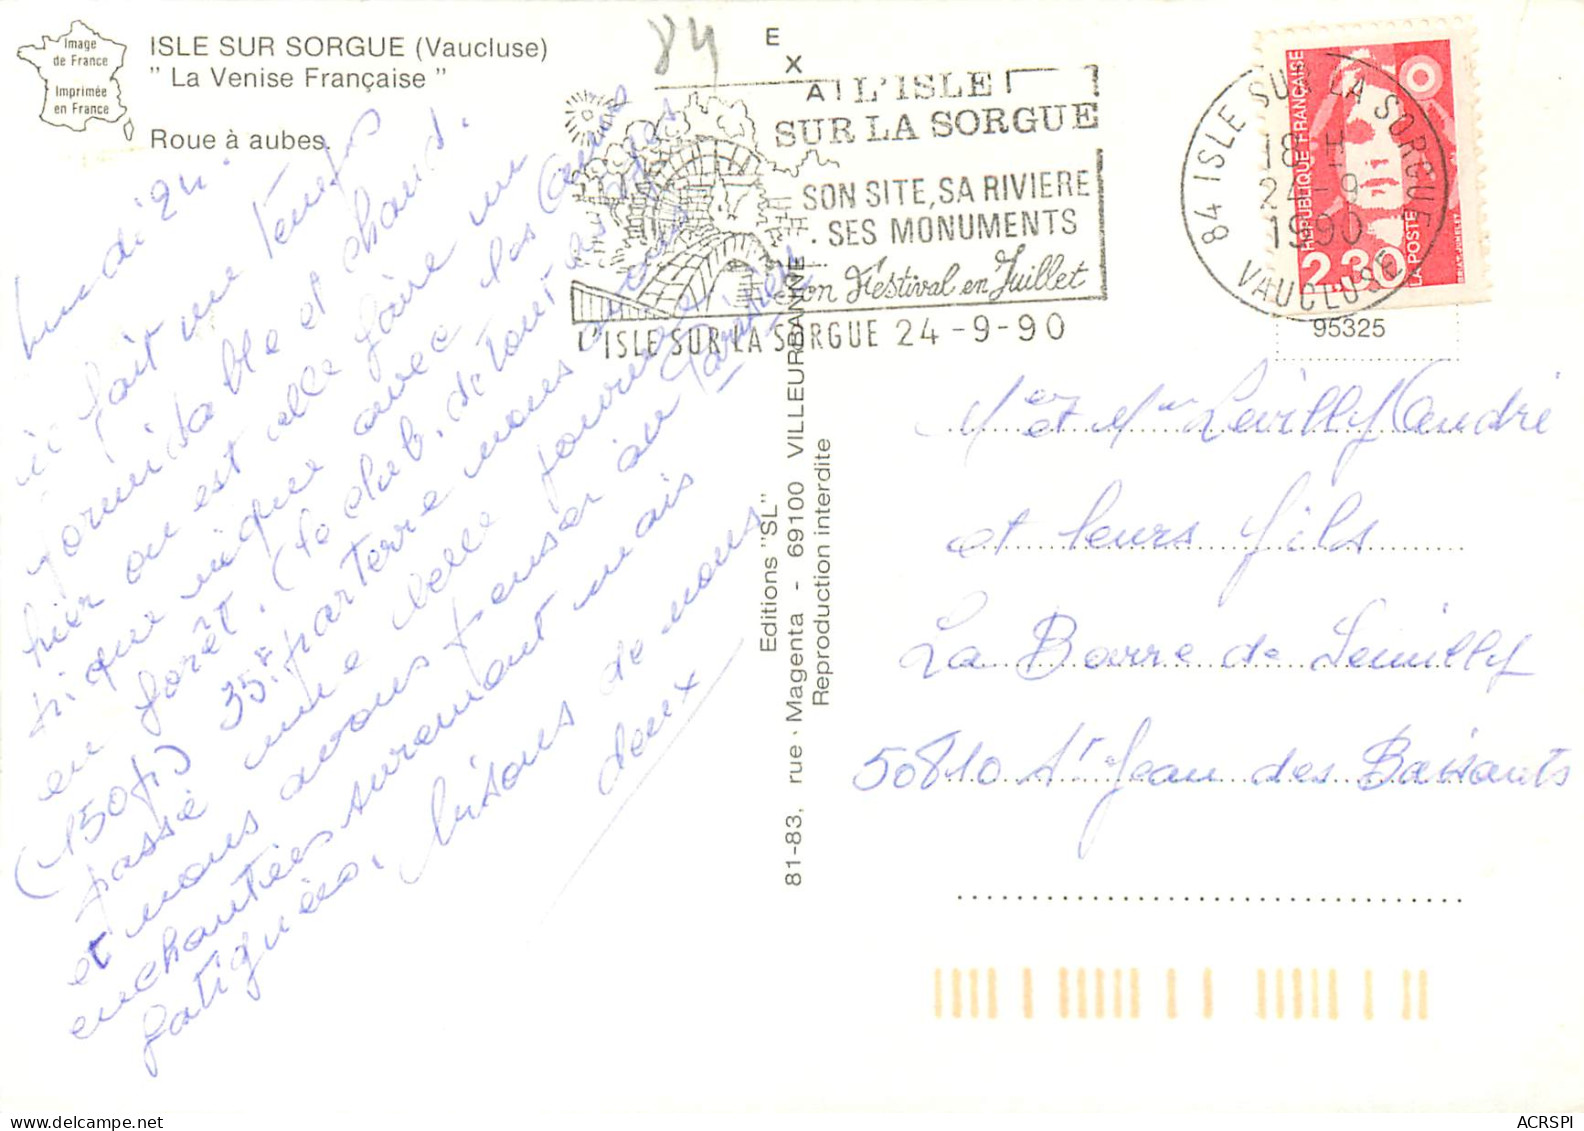 Image
de France
Imprimée
en France
ISLE SUR SORGUE (Vaucluse)
" La Venise Française "
Roue à aubes.
84
E
X
A
L'ISLE
SUR LA SORGUE
SON SITE, SA RIVIERE
SES MONUMENTS
son Festival en Juillet
L'ISLE SUR LA SORGUE 24-9-90
84 ISLE SUR LA SORGUE
18 H
24-9
1990
VAUCLUSE
REPUBLIQUE FRANÇAISE
LA POSTE
2,30
95325
lundi 24.
ici fait une temps
formidable et chaud.
hier on est allé faire un
pique nique avec les
en forêt. (le club. de tout
(150 fr) 35 par terre nous avons
passé une belle journée
et nous avons penser au
enchantées surement mais
fatiguées, bisous de nous
deux
Editions "SL"
81-83, rue Magenta - 69100 VILLEURBANNE
Reproduction interdite
Mr et Mme Levilly André
et leurs fils
La Barre de Semilly
50810 St Jean des Baisants
ACRSPI